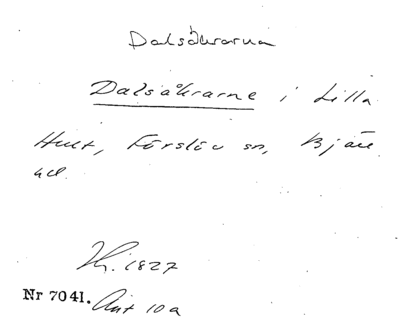 Dalsåkrarna
Dalsåkrarne i Lilla
Hult, Förslöv sn, Bjäre
hd.
Hy. 1827
Nr 7041. Akt 10a